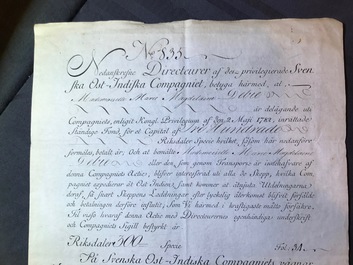 No 855.
Nedanskrefne Directeurer af det privilegierade Sven
ska Ost-Indiska Compagniet, betyga härmed, at
Mademoiselle Marie Magdelaine Debrie
är delägande uti
Compagniets, enligit Kongl. Privilegium af den 2 Maji 1782, inrättade
Ständige Fond, för et Capital af Tre Hundrade
Riksdaler Specie hvilket, såsom här nedanföre
förmäles, betalt är; Och at bemälte Mademoiselle Marie Magdelaine
Debrie eller den, som genom Transport är innehafvare af
denna Compagniets Actie, blifver interesserad uti alla de Skepp, hvilka Com
pagniet expedierar åt Ost Indien, samt kommer at åtnjuta Utdelningarne,
deraf, så snart Skeppens Laddningar efter lyckelig återkomst blifvit försålde
och betalningen derföre influtit; Som Vi härmed i kraftigaste måtto försäkre.
Til viso hvaraf denna Actie med Directeurernes egenhändiga underskrift
och Compagniets Sigill bestyrkt är.
Riksdaler 300 Specie. Fol. 34.
På Svenska Ost-Indiska Compagniets vägnar